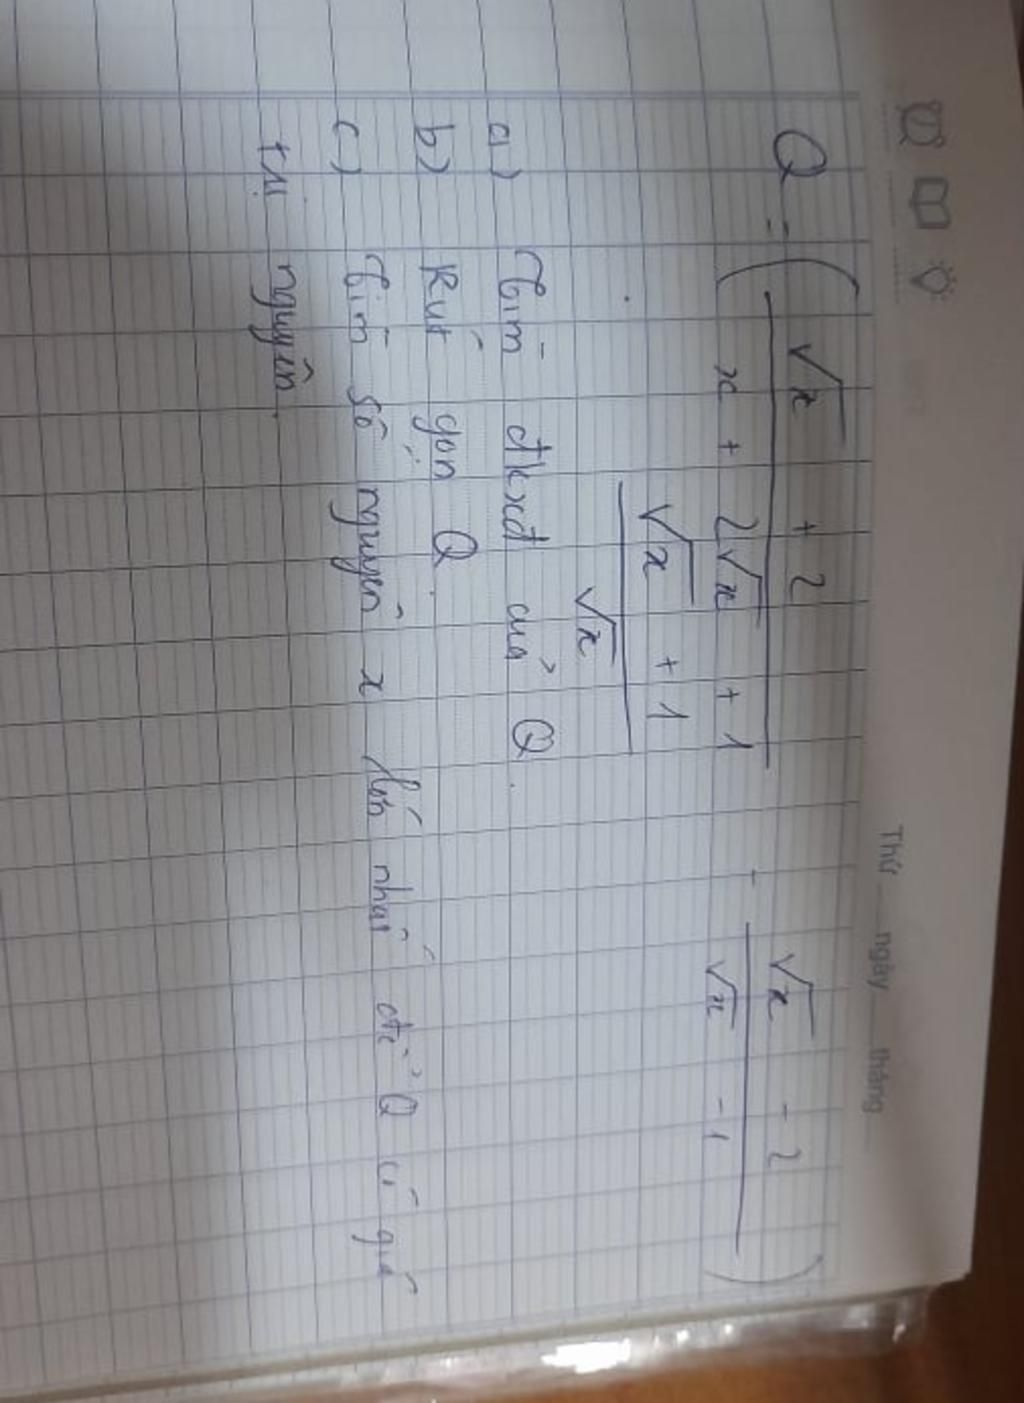 Thứ ngày tháng
Q = ( √x + 2 / x + 2√x + 1 - √x - 2 / √x - 1 )
. √x + 1 / √x
a) Tìm đkxđ của Q.
b) Rút gọn Q.
c) Tìm số nguyên x lớn nhất để Q có giá
trị nguyên.